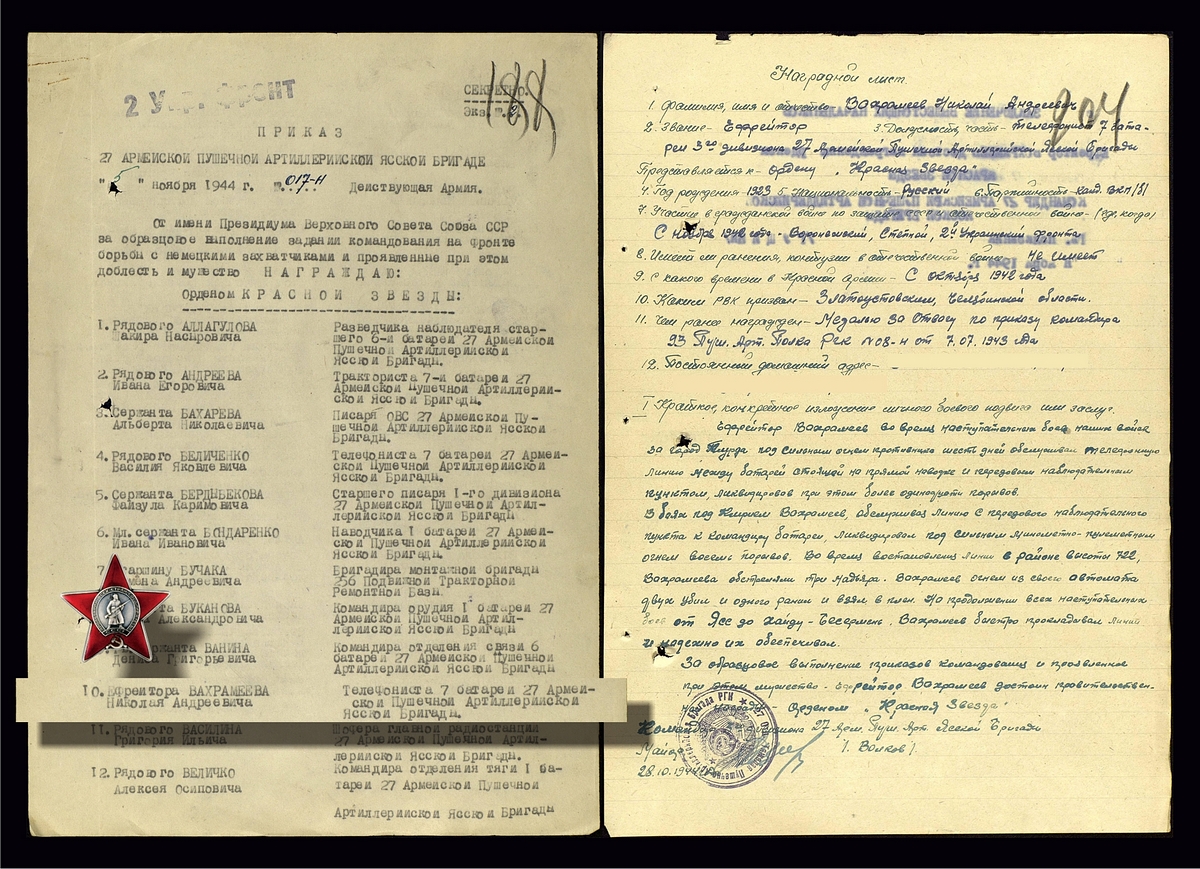 2 Укр. Фронт
СЕКРЕТНО.
Экз. № 2.
188
ПРИКАЗ
27 АРМЕЙСКОЙ ПУШЕЧНОЙ АРТИЛЛЕРИЙСКОЙ ЯССКОЙ БРИГАДЕ
"5" ноября 1944 г. № 017-Н Действующая Армия.
От имени Президиума Верховного Совета Союза ССР
за образцовое выполнение заданий командования на фронте
борьбы с немецкими захватчиками и проявленные при этом
доблесть и мужество НАГРАЖДАЮ:
Орденом КРАСНОЙ ЗВЕЗДЫ:
1. Рядового АЛЛАГУЛОВА Разведчика наблюдателя стар-
Шакира Насыровича шего 6-й батареи 27 Армейской
Пушечной Артиллерийской
Ясской Бригады.
2. Рядового АНДРЕЕВА Тракториста 7-й батареи 27
Ивана Егоровича Армейской Пушечной Артиллерий-
ской Ясской Бригады.
3. Сержанта БАХАРЕВА Писаря ОВС 27 Армейской Пу-
Альберта Николаевича шечной Артиллерийской Ясской
Бригады.
4. Рядового БЕЛИЧЕНКО Телефониста 7 батареи 27 Армей-
Василия Яковлевича ской Пушечной Артиллерийской
Ясской Бригады.
5. Сержанта БЕРДЫБЕКОВА Старшего писаря I-го дивизиона
Файзула Каримовича 27 Армейской Пушечной Артил-
лерийской Ясской Бригады
6. Мл. сержанта БОНДАРЕНКО Наводчика I батареи 27 Армей-
Ивана Ивановича ской Пушечной Артиллерийской
Ясской Бригады.
7. Старшину БУЧАКА Бригадира монтажной бригады
Андреевича 256 Подвижной Тракторной
Ремонтной Базы.
БУКАНОВА Командира орудия I батареи 27
Александровича Армейской Пушечной Артил-
лерийской Ясской Бригады
ВАНИНА Командира отделения связи 6
Дениса Григорьевича батареи 27 Армейской Пушечной
Артиллерийской Ясской Бригады
10. Ефрейтора ВАХРАМЕЕВА Телефониста 7 батареи 27 Армей-
Николая Андреевича ской Пушечной Артиллерийской
Ясской Бригады.
11. Рядового ВАСИЛИНА Шофера главной радиостанции
Григория Ильича 27 Армейской Пушечной Артил-
лерийской Ясской Бригады.
12. Рядового ВЕЛИЧКО Командира отделения тяги I ба-
Алексея Осиповича тареи 27 Армейской Пушечной
Артиллерийской Ясской Бригады
Наградной лист.
204
1. Фамилия, имя и отчество Вахрамеев Николай Андреевич
2. Звание - Ефрейтор 3. Должность, часть - телефонист 7 бата-
реи 3го дивизиона 27 Армейской Пушечной Артиллерийской Ясской Бригады
Представляется к - Ордену "Красная Звезда"
4. Год рождения 1923 5. Национальность - Русский 6. Партийность - канд. ВКП/б/
7. Участие в гражданской войне по защите СССР и отечественной войне - (где, когда)
С ноября 1942 года - Воронежский, Степной, 2й Украинский фронта
8. Имеет ли ранения, контузии в отечественной войне не имеет
9. С какого времени в Красной армии - С октября 1942 года
10. Каким РВК призван - Златоустовским, Челябинской области.
11. Чем ранее награжден - Медалью За Отвагу по приказу командира
93 Пуш. Арт. Полка РГК № 08-н от 7.07.1943 года
12. Постоянный домашний адрес -
I Краткое, конкретное изложение личного боевого подвига или заслуг.
Ефрейтор Вахрамеев во время наступательных боев наших войск
за город Турда под сильным огнем противника шесть дней обслуживал телефонную
линию между батареей стоящей на прямой наводке и передовым наблюдательным
пунктом, ликвидировав при этом более одинадцати порывов.
В боях под Вахрамеев, обслуживая линию с передового наблюдательного
пункта к командиру батареи, ликвидировал под сильным минометно-пулеметным
огнем восемь порывов. Во время востановления линии в районе высоты 722,
Вахрамеева обстреляли три мадьяра. Вахрамеев огнем из своего автомата
двух убил и одного ранил и взял в плен. На протяжении всех наступательных
боев от Ясс до Хайду-Бесермень. Вахрамеев быстро прокладывал линии
и надежно их обеспечивал.
За образцовое выполнение приказов командования и проявленное
при этом мужество. Ефрейтор Вахрамеев достоин правительствен-
Награды Орденом "Красная Звезда"
Командир дивизиона 27 Арм. Пуш. Арт. Ясской Бригады
Майор / Волков /.
28.10.1944